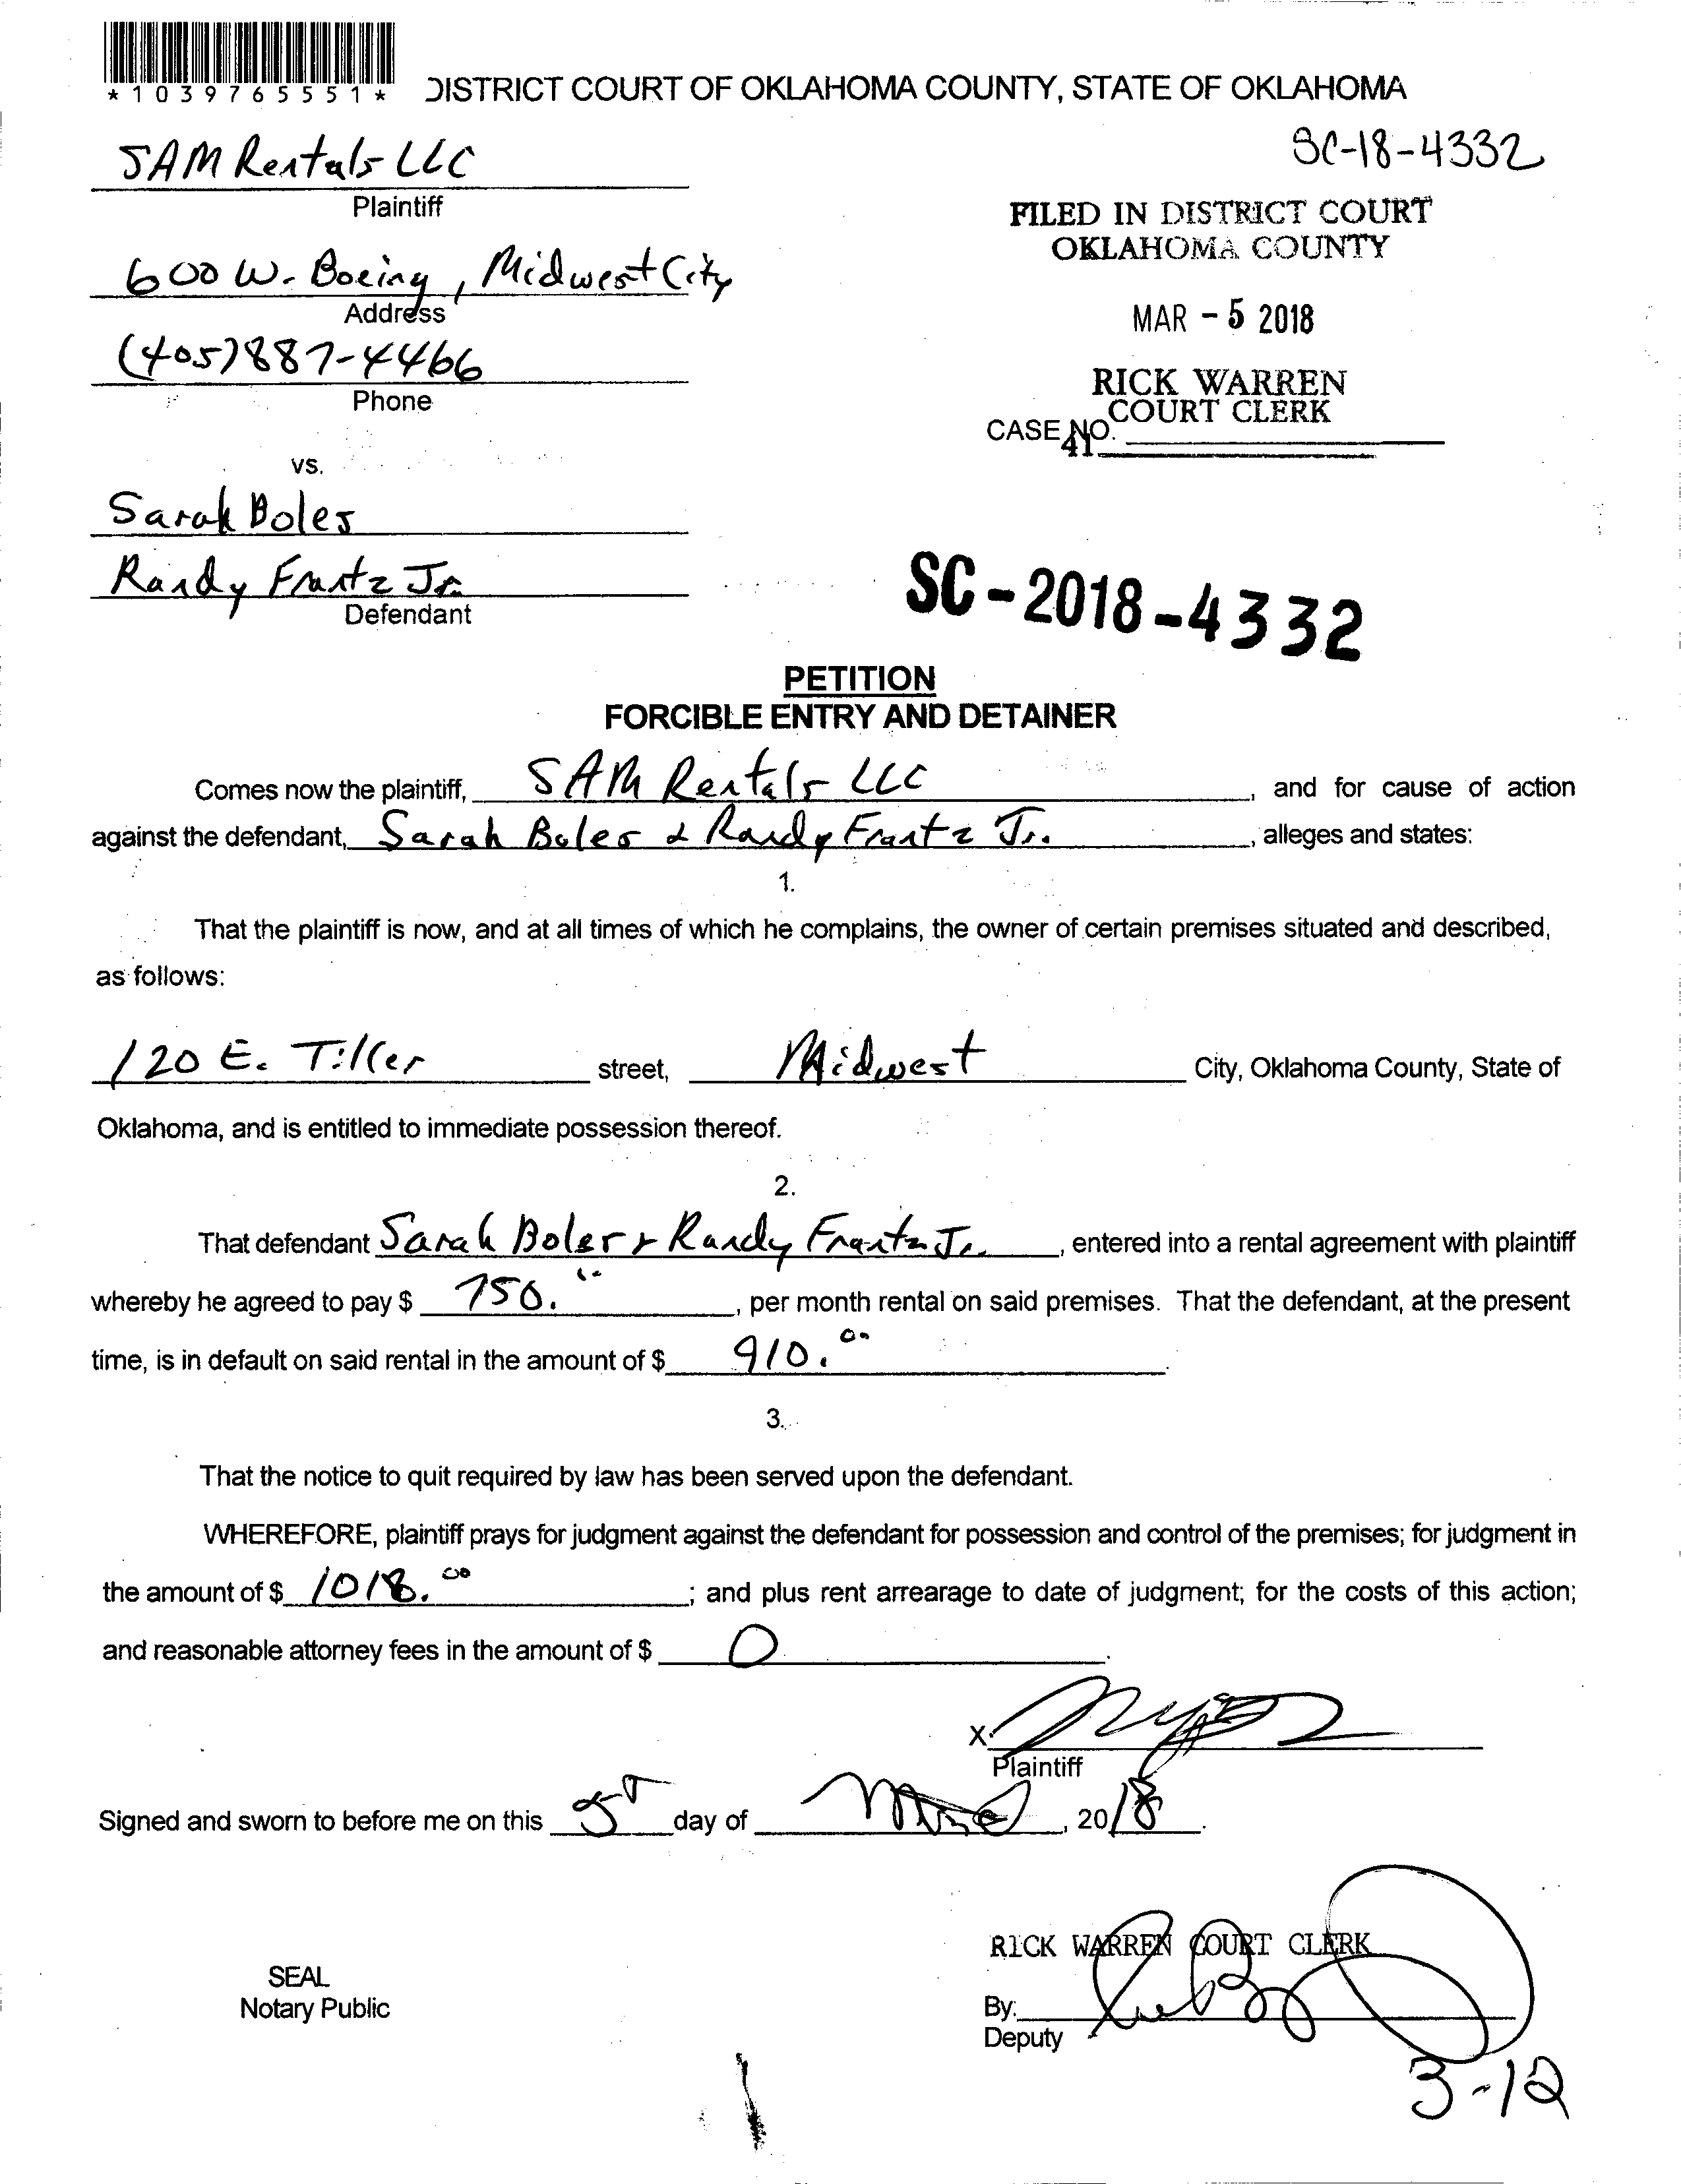 *1039765551*
DISTRICT COURT OF OKLAHOMA COUNTY, STATE OF OKLAHOMA
SAM Rentals LLC
SC-18-4332
Plaintiff
FILED IN DISTRICT COURT
OKLAHOMA COUNTY
600 W. Boeing, Midwest City
Address
MAR - 5 2018
(405) 887-4466
Phone
RICK WARREN
COURT CLERK
CASE NO.
41
vs.
Sarah Boles
Randy Frantz Jr.
Defendant
SC-2018-4332
PETITION
FORCIBLE ENTRY AND DETAINER
Comes now the plaintiff, SAM Rentals LLC, and for cause of action
against the defendant, Sarah Boles & Randy Frantz Jr., alleges and states:
1.
That the plaintiff is now, and at all times of which he complains, the owner of certain premises situated and described,
as follows:
120 E. Tiller street, Midwest City, Oklahoma County, State of
Oklahoma, and is entitled to immediate possession thereof.
2.
That defendant Sarah Boles & Randy Frantz Jr., entered into a rental agreement with plaintiff
whereby he agreed to pay $ 750.00, per month rental on said premises. That the defendant, at the present
time, is in default on said rental in the amount of $ 910.00.
3.
That the notice to quit required by law has been served upon the defendant.
WHEREFORE, plaintiff prays for judgment against the defendant for possession and control of the premises; for judgment in
the amount of $ 1018.00; and plus rent arrearage to date of judgment; for the costs of this action;
and reasonable attorney fees in the amount of $ 0.
X
Plaintiff
Signed and sworn to before me on this 5 day of , 2018.
RICK WARREN COURT CLERK
SEAL
Notary Public
By:
Deputy
3-12